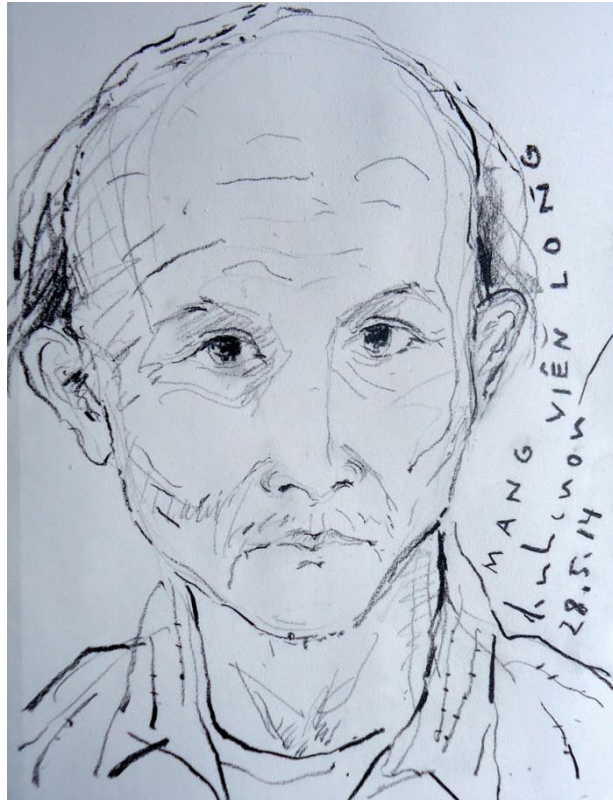 MANG VIÊN LONG
28.5.14